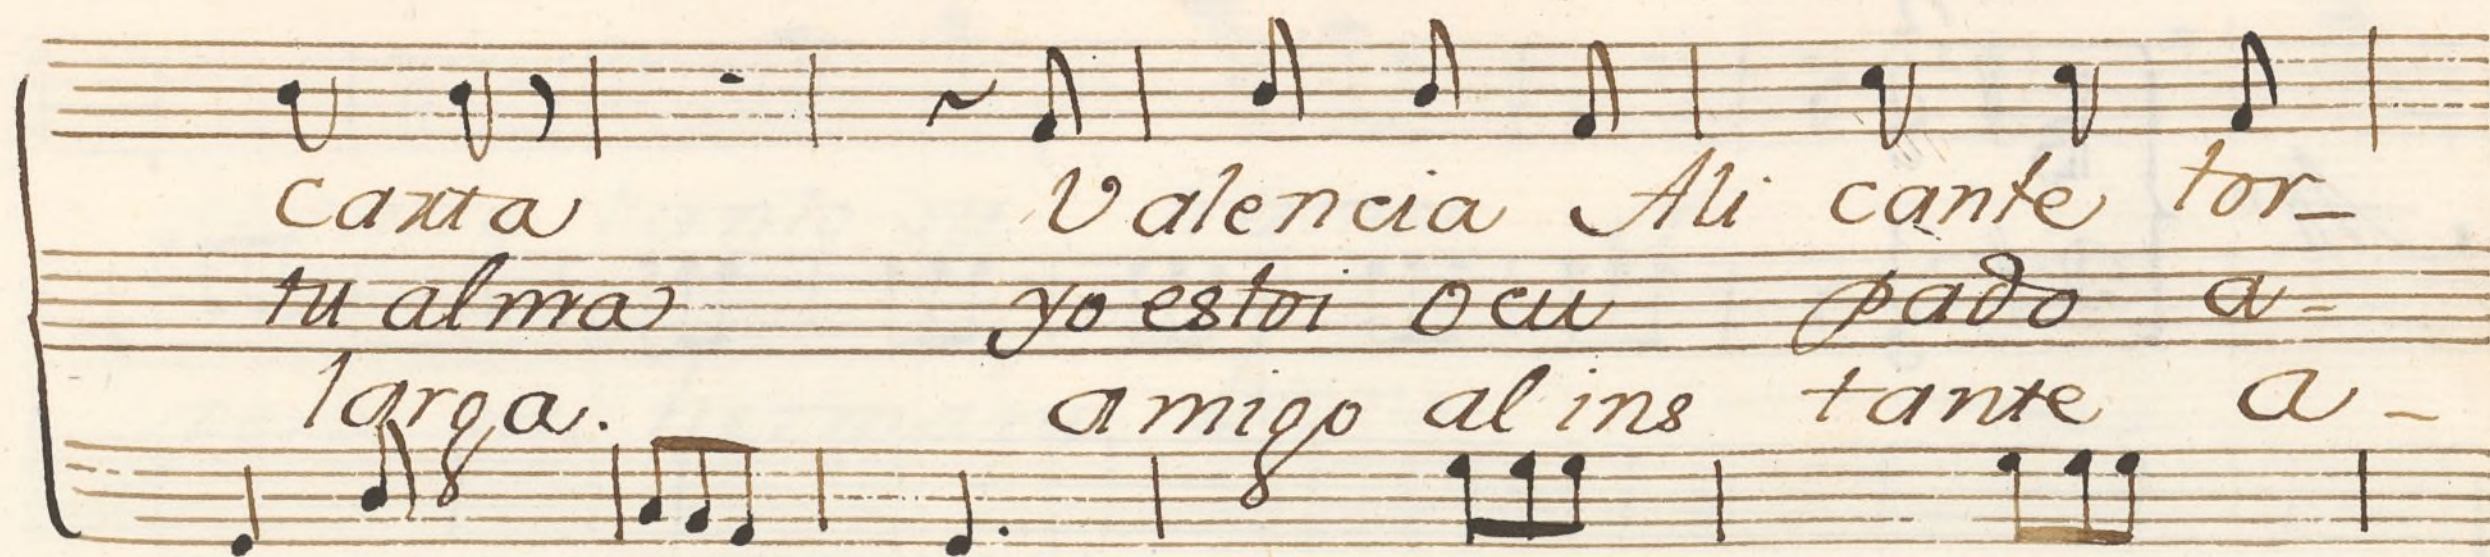 carta Valencia Ali cante tor-
tu alma yo estoi ocu pado a-
larga. amigo al ins tante a-